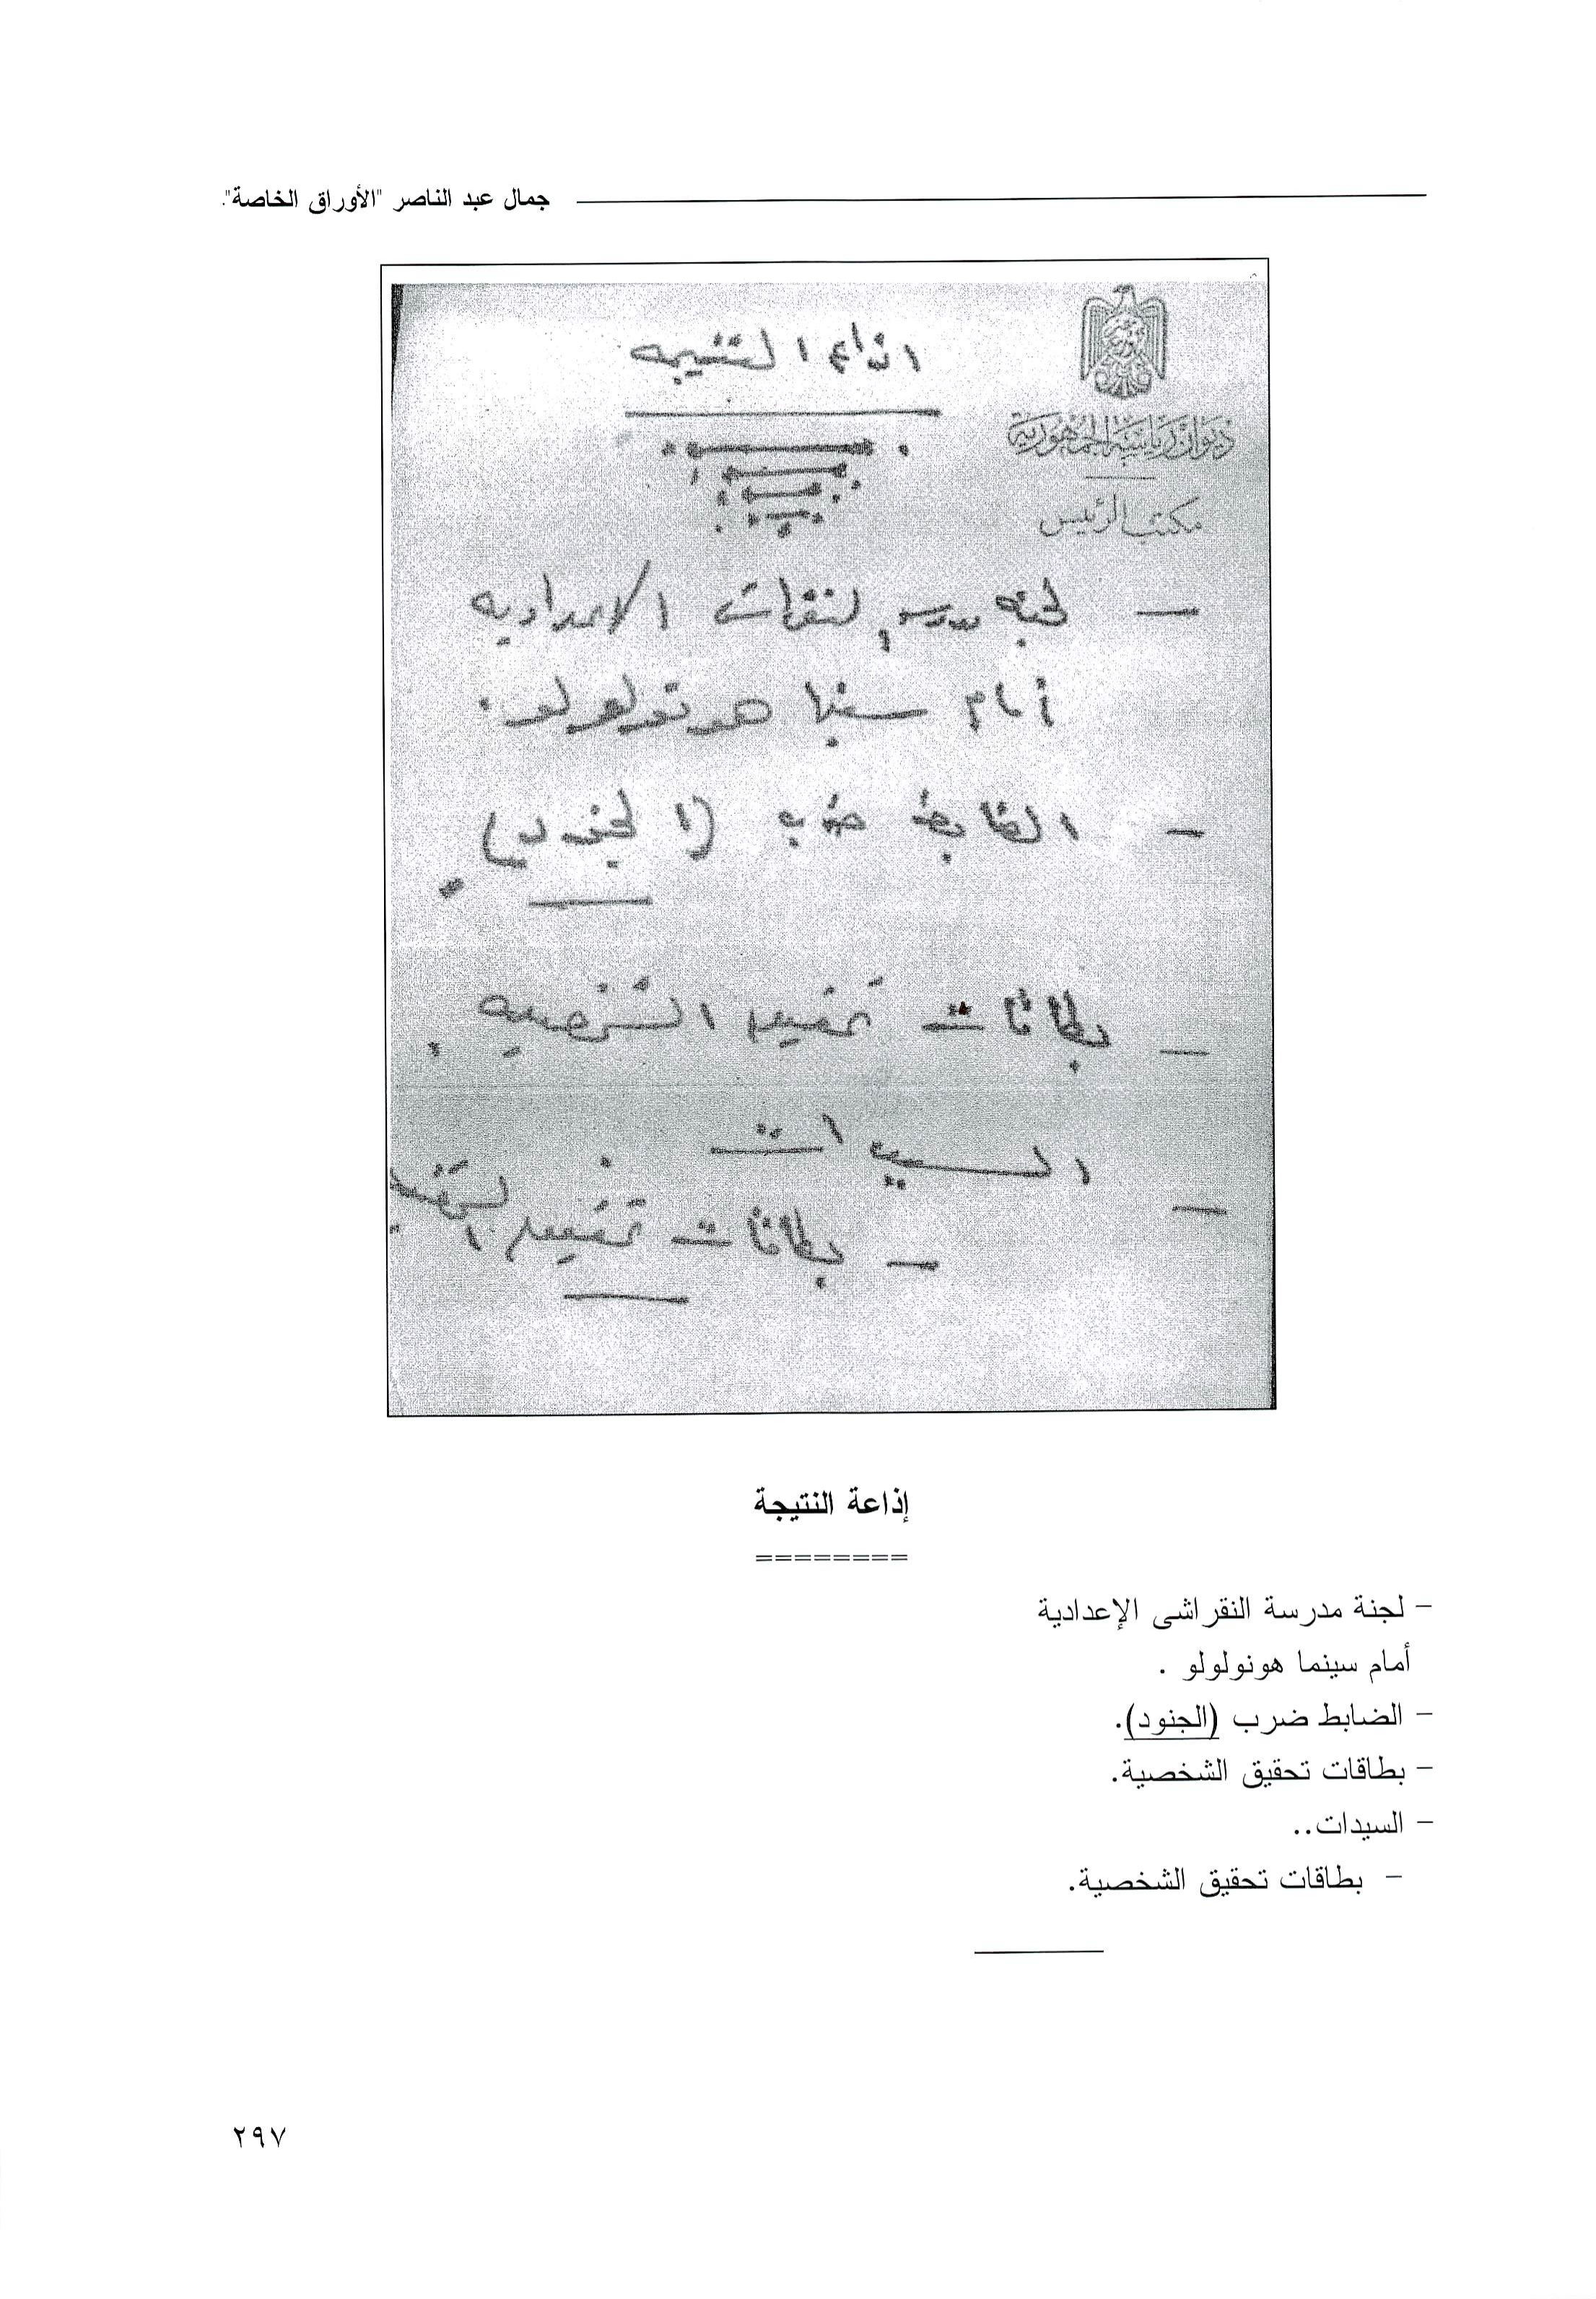 جمال عبد الناصر "الأوراق الخاصة".
ديوان رياسة الجمهورية
مكتب الرئيس
اذاعة النتيجه
— لجنة مدرسة النقراشى الاعداديه
أمام سينما هونولولو .
— الضابط ضرب (الجنود) .
— بطاقات تحقيق الشخصيه .
— السيدات
— بطاقات تحقيق الشخصيه
إذاعة النتيجة
========
- لجنة مدرسة النقراشى الإعدادية
أمام سينما هونولولو .
- الضابط ضرب (الجنود).
- بطاقات تحقيق الشخصية.
- السيدات..
- بطاقات تحقيق الشخصية.
٢٩٧